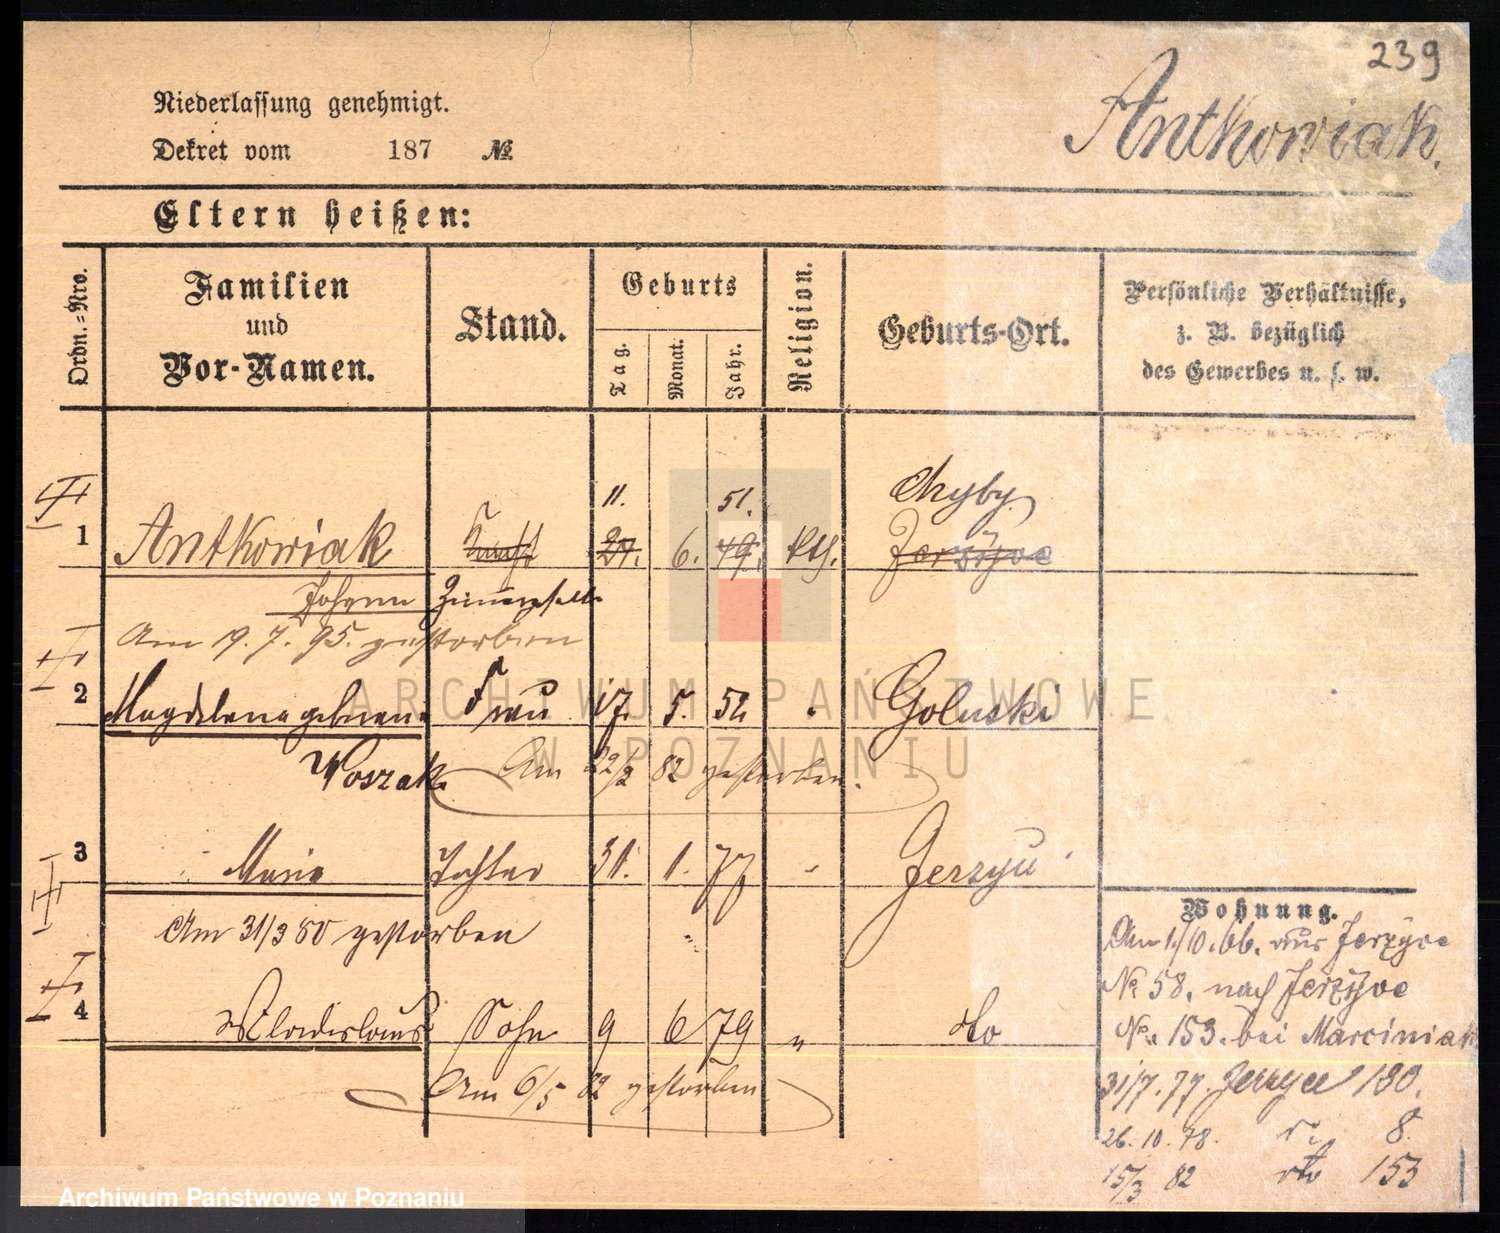 239
Antkowiak.
Niederlassung genehmigt.
Dekret vom 187 №
Eltern heißen:
Ordn.=Nro.
Familien und Vor-Namen.
Stand.
Geburts
Tag.
Monat.
Jahr.
Religion.
Geburts-Ort.
Persönliche Verhältnisse,
z. B. bezüglich
des Gewerbes u. s. w.
11. 51. Chyby
1 Antkowiak 27. 6. 49. kth. Jerzyce
Johann
Am 19. 7. 95. gestorben
2 Magdalena geborene Frau 17. 5. 52 Goluski
Woszak Am 22/2 82 gestorben.
3 Marie Tochter 31. 1. 77 Jerzyce
Am 31/3 80 gestorben
4 Wladislaus Sohn 9 6 79 " dto
Am 6/5 82 gestorben
Wohnung.
Am 1./10. 66. aus Jerzyce
№ 58. nach Jerzyce
№. 153. bei Marciniak
31/7. 77. Jerzyce 180.
26. 10. 78. 8.
15/3 82 dto 153
ARCHIWUM PAŃSTWOWE
W POZNANIU
Archiwum Państwowe w Poznaniu